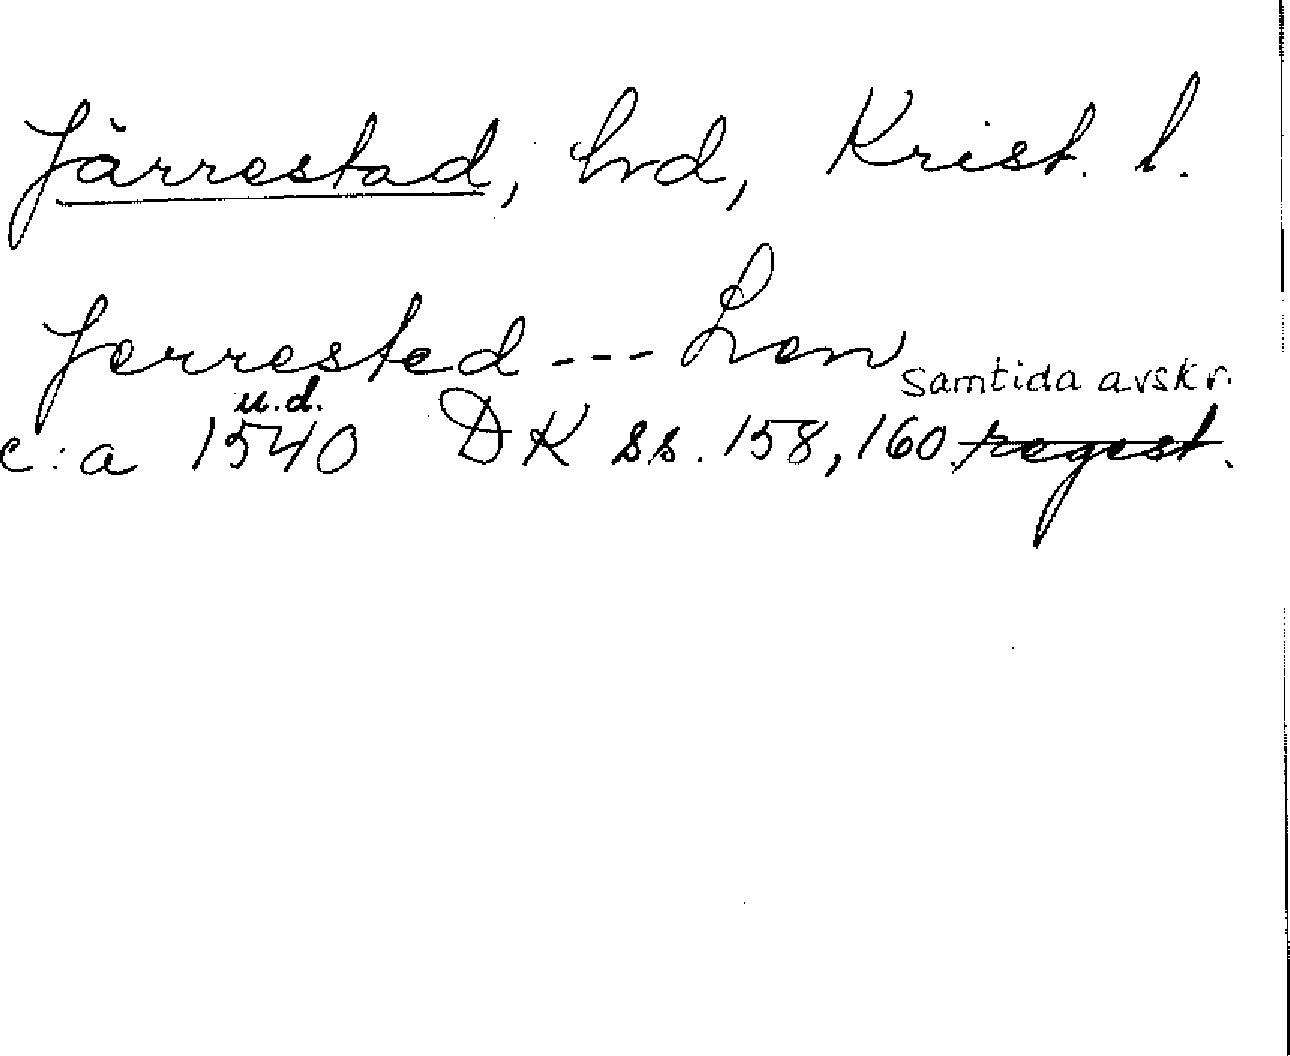 Järrestad, hrd, Krist. l.
Jerrested --- Len
Samtida avskr.
u.d.
c:a 1540 DK ss. 158, 160 regest.